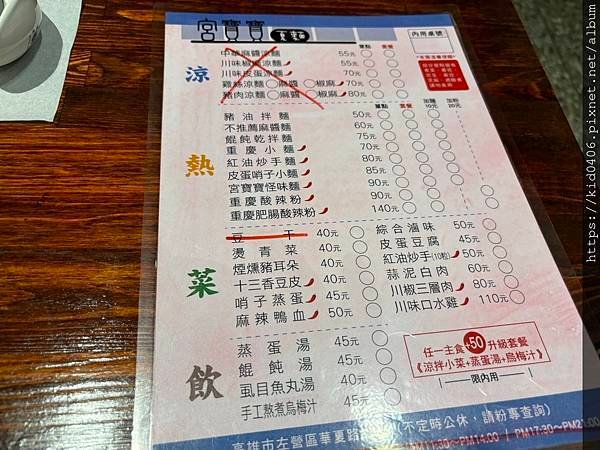 宮寶寶
內用桌號
涼
單點 套餐
中華麻醬涼麵 55元
川味椒麻涼麵 55元
川味皮蛋涼麵 70元
雞絲涼麵 麻醬 椒麻 70元
豬肉涼麵 麻醬 椒麻 80元
熱
單點 套餐 加麵10元 加粉20元
豬油拌麵 50元
不推薦麻醬麵 60元
餛飩乾拌麵 75元
重慶小麵 70元
紅油炒手麵 80元
皮蛋哨子小麵 85元
宮寶寶怪味麵 90元
重慶酸辣粉 90元
重慶肥腸酸辣粉 140元
菜
豆干 40元
燙青菜 40元
煙燻豬耳朵 40元
十三香豆皮 40元
哨子蒸蛋 45元
麻辣鴨血 50元
綜合滷味 50元
皮蛋豆腐 45元
紅油炒手(10粒) 50元
蒜泥白肉 60元
川椒三層肉 80元
川味口水雞 110元
飲
蒸蛋湯 45元
餛飩湯 45元
虱目魚丸湯 40元
手工熬煮烏梅汁 45元
任一主食+50升級套餐
《涼拌小菜+蒸蛋湯+烏梅汁》
限內用
(不定時公休，請粉專查詢)
高雄市左營區華夏路
AM11:30~PM14:00 | PM17:30~PM21:00
https://kid0406.pixnet.net/album